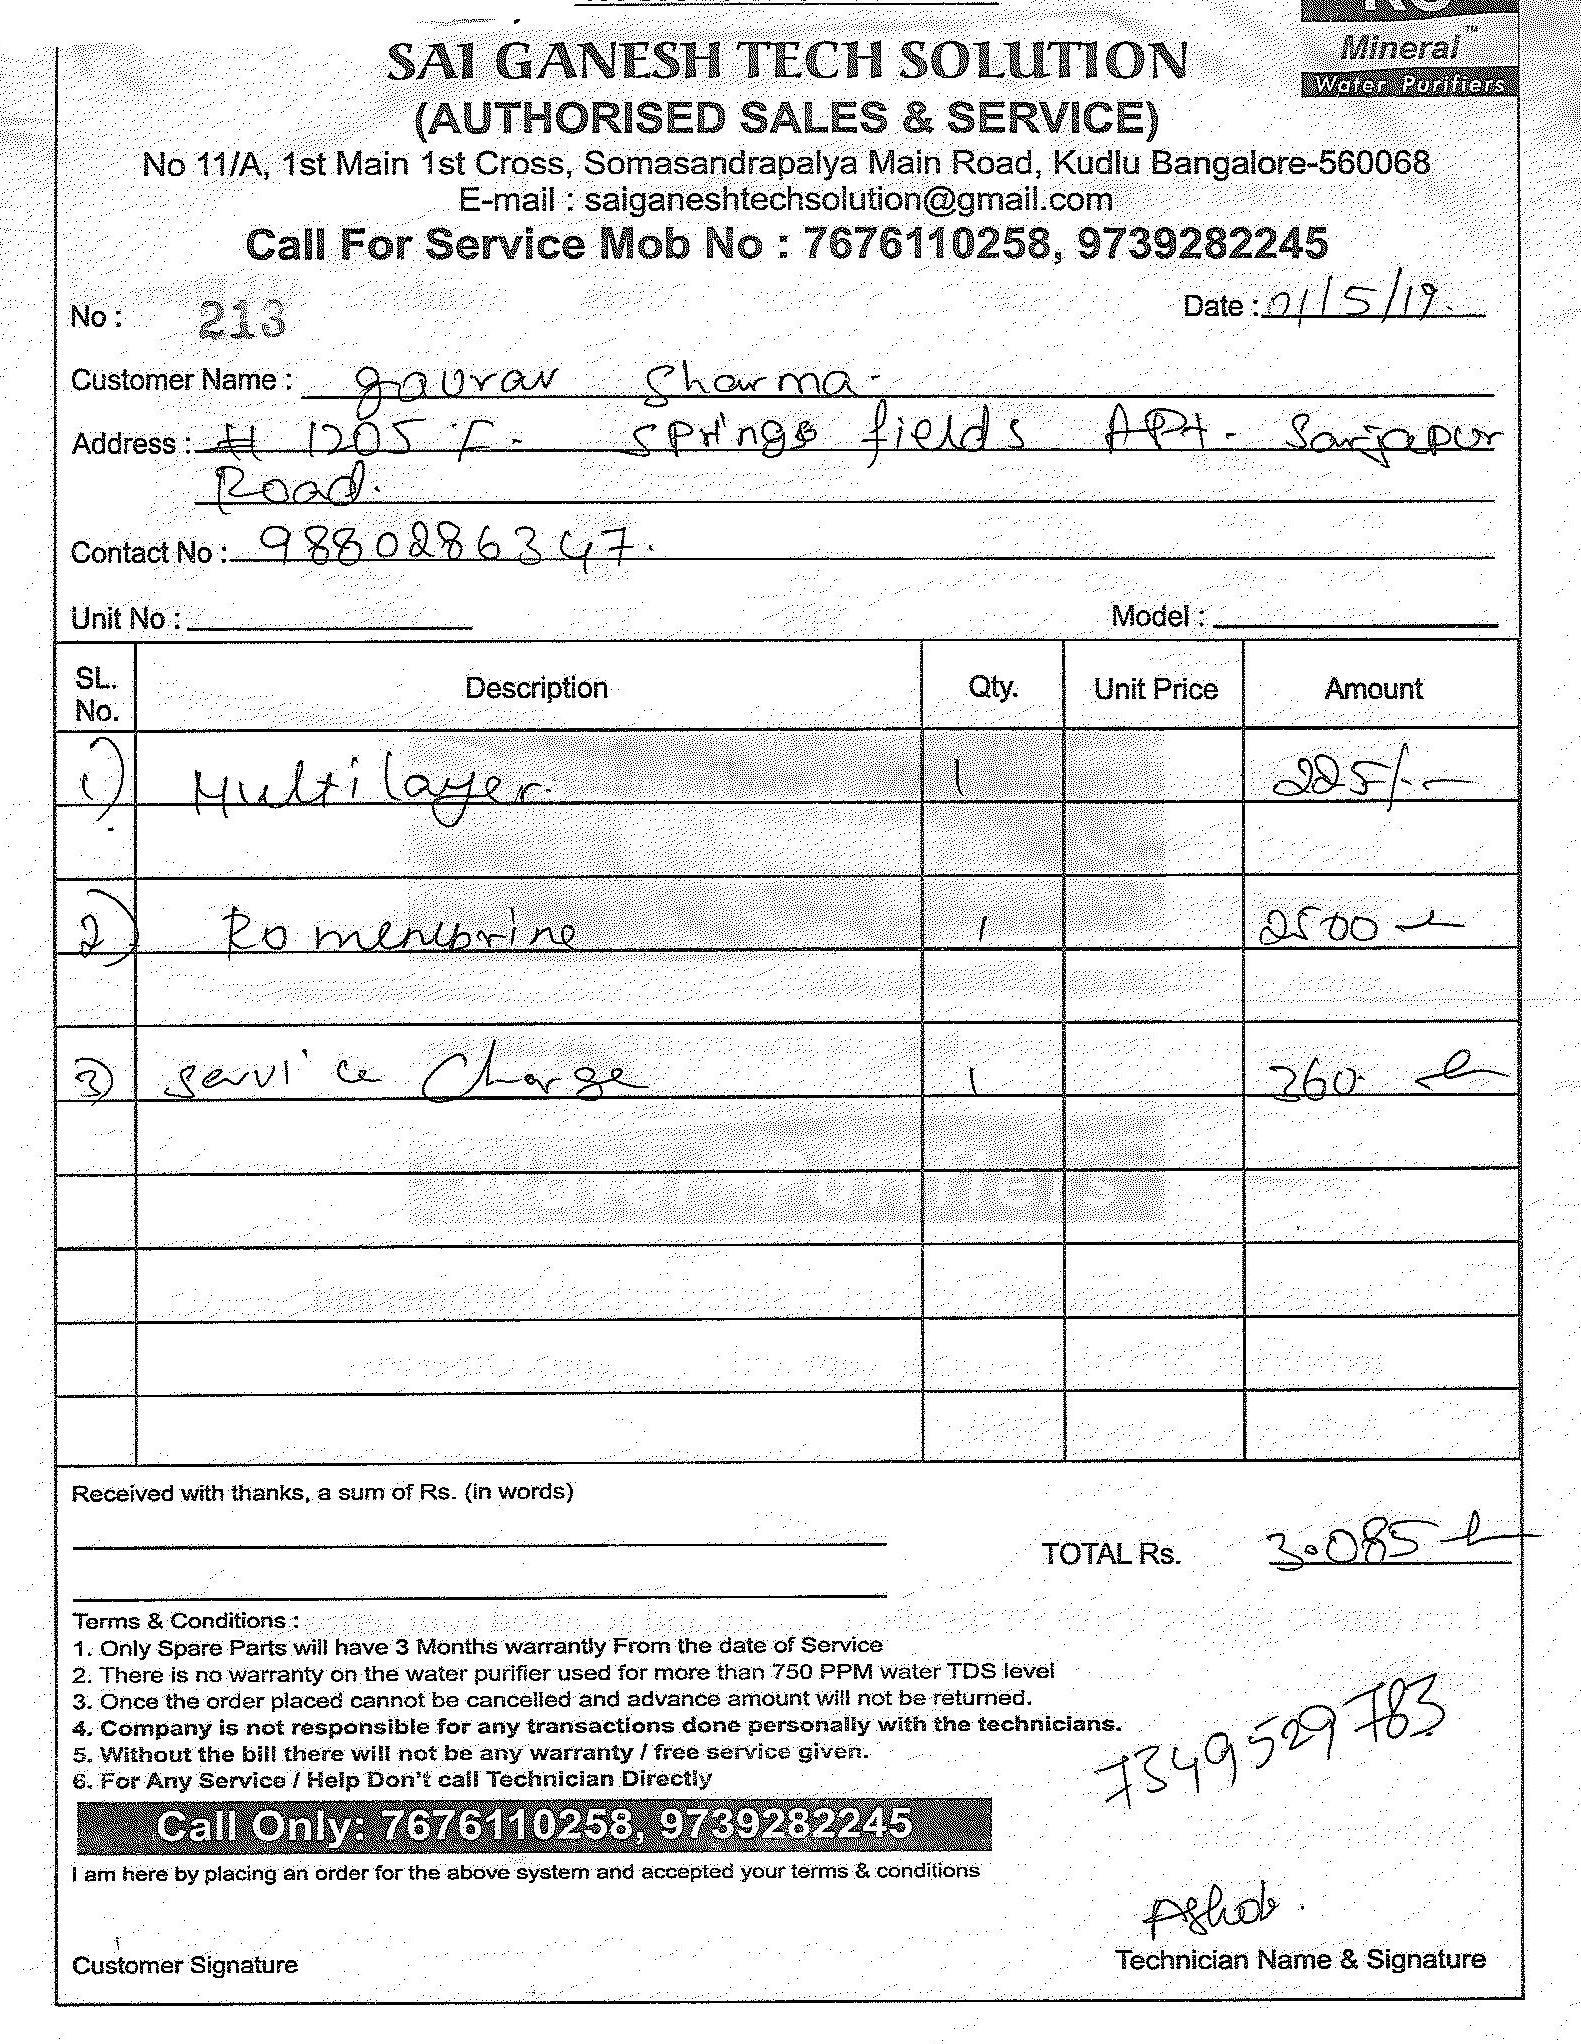 Mineral™
Water Purifiers
SAI GANESH TECH SOLUTION
(AUTHORISED SALES & SERVICE)
No 11/A, 1st Main 1st Cross, Somasandrapalya Main Road, Kudlu Bangalore-560068
E-mail : saiganeshtechsolution@gmail.com
Call For Service Mob No : 7676110258, 9739282245
No : 213 Date : 01/5/19.
Customer Name : gaurav Sharma-
Address : # 1205 F. Springs fields APt- Sarjapur
Road.
Contact No : 9880286347.
Unit No : Model :
SL. No. Description Qty. Unit Price Amount
1) Multilayer. 1 225/-
2) Ro membrine 1 2500
3) Service Charge 1 360
Received with thanks, a sum of Rs. (in words)
TOTAL Rs. 3.085
Terms & Conditions :
1. Only Spare Parts will have 3 Months warrantly From the date of Service
2. There is no warranty on the water purifier used for more than 750 PPM water TDS level
3. Once the order placed cannot be cancelled and advance amount will not be returned.
4. Company is not responsible for any transactions done personally with the technicians.
5. Without the bill there will not be any warranty / free service given.
6. For Any Service / Help Don't call Technician Directly
7349529783
Call Only: 7676110258, 9739282245
I am here by placing an order for the above system and accepted your terms & conditions
Customer Signature Technician Name & Signature